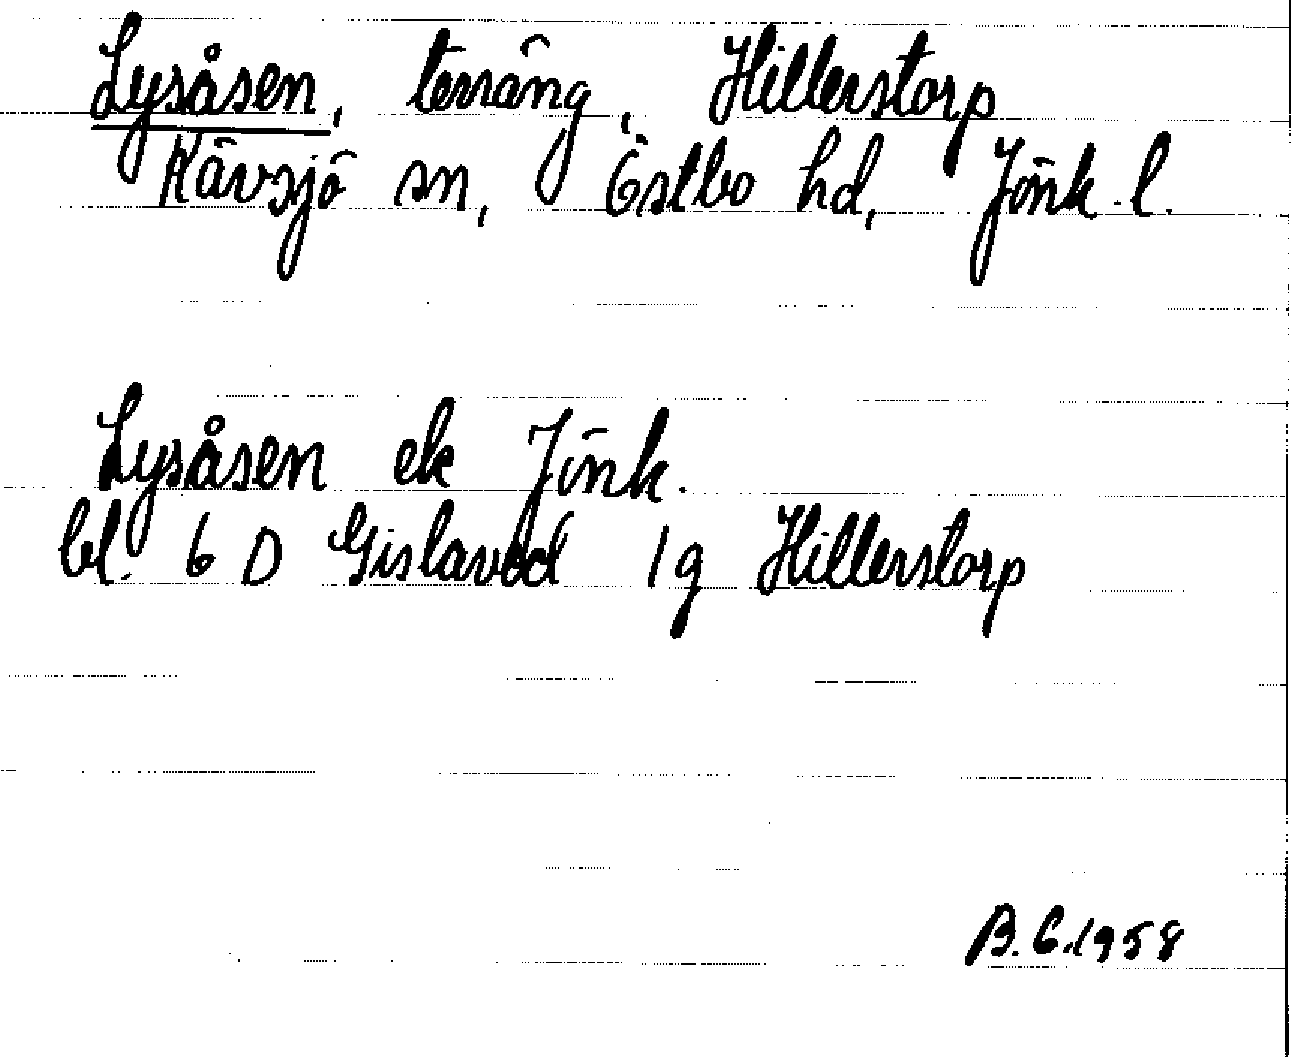 Lysåsen, terräng, Hillerstorp
Kävsjö sn, Östbo hd, Jönk. l.
Lysåsen ek Jönk.
bl. 6 D Gislaved 1g Hillerstorp
B.C.1958